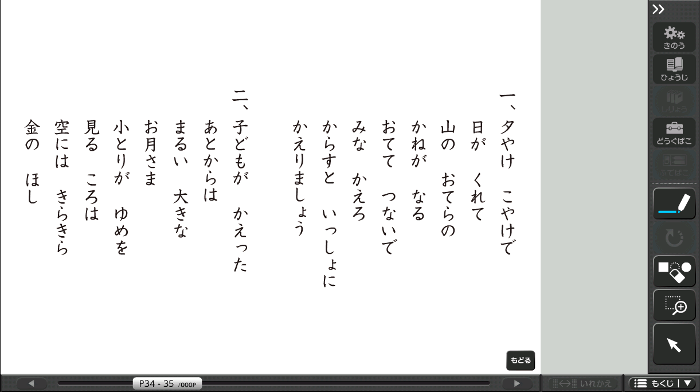 一、夕やけ　こやけで
日が　くれて
山の　おてらの
かねが　なる
おてて　つないで
みな　かえろ
からすと　いっしょに
かえりましょう
二、子どもが　かえった
あとからは
まるい　大きな
お月さま
小とりが　ゆめを
見る　ころは
空には　きらきら
金の　ほし
きのう
ひょうじ
どうぐばこ
もどる
P34 - 35 /000P
いれかえ
もくじ